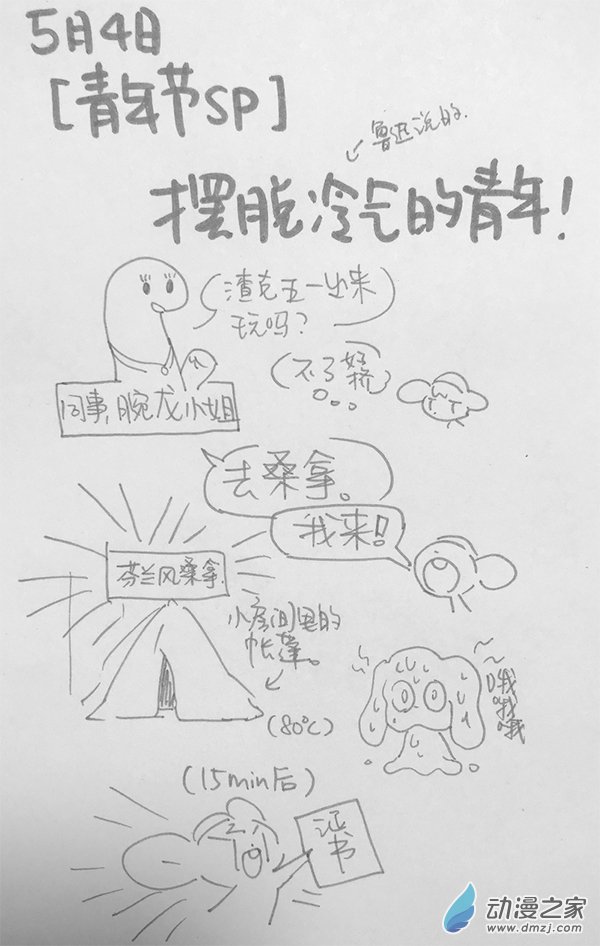 5月4日
[青年节SP]
鲁迅说的.
摆脱冷气的青年!
渣克五一出来
玩吗?
(不了好挤)
同事,腕龙小姐
去桑拿。
我来!!
芬兰风桑拿.
小房间里的
帐篷。
(80℃)
哦
哦
哦
(15min后)
证
书
动漫之家
www.dmzj.com